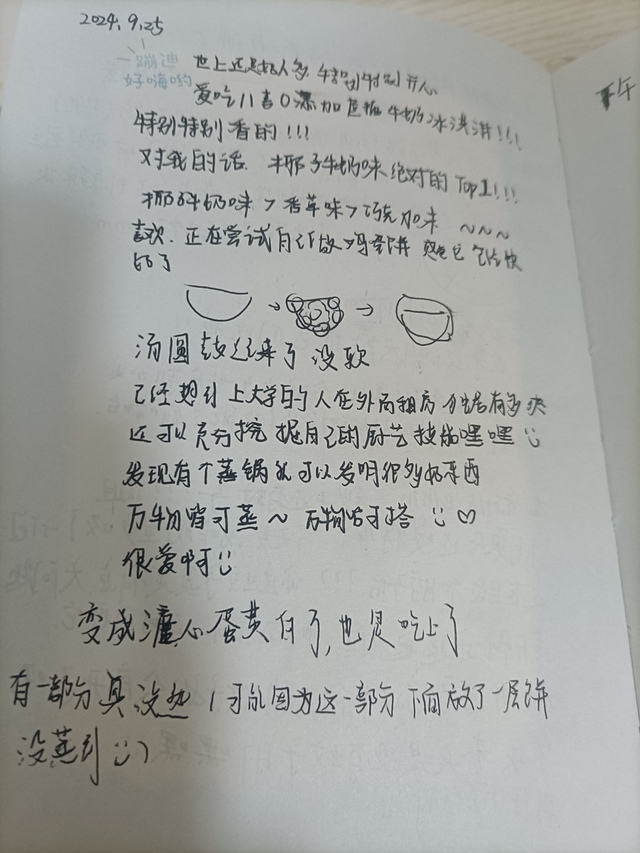 2024.9.25
一蹦迪
好嗨哟
世上还是好人多 特别特别开心
爱吃 0添加 牛奶冰淇淋!!!
特别特别香的!!!
对我的话. 椰子牛奶味绝对的Top1!!!
椰子牛奶味>香草味>巧克力味 ~~~
喜欢. 正在尝试自己做鸡蛋饼
的了
→ →
汤圆 没软
已经想到上大学的人在外面租房 生活有多爽
还可以充分挖掘自己的厨艺技能嘿嘿
发现有个蒸锅就可以发明很多好东西
万物皆可蒸~ 万物皆可搭 ♡
很爱啊
变成溏心蛋黄白了,也是吃上了
有一部分真没熟,可能因为这一部分下面放了一层饼
没蒸到
下午